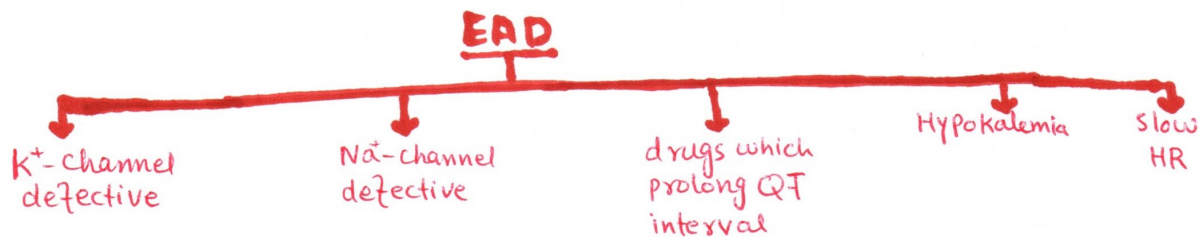 EAD
K⁺-channel
defective
Na⁺-channel
defective
drugs which
prolong QT
interval
Hypokalemia
slow
HR